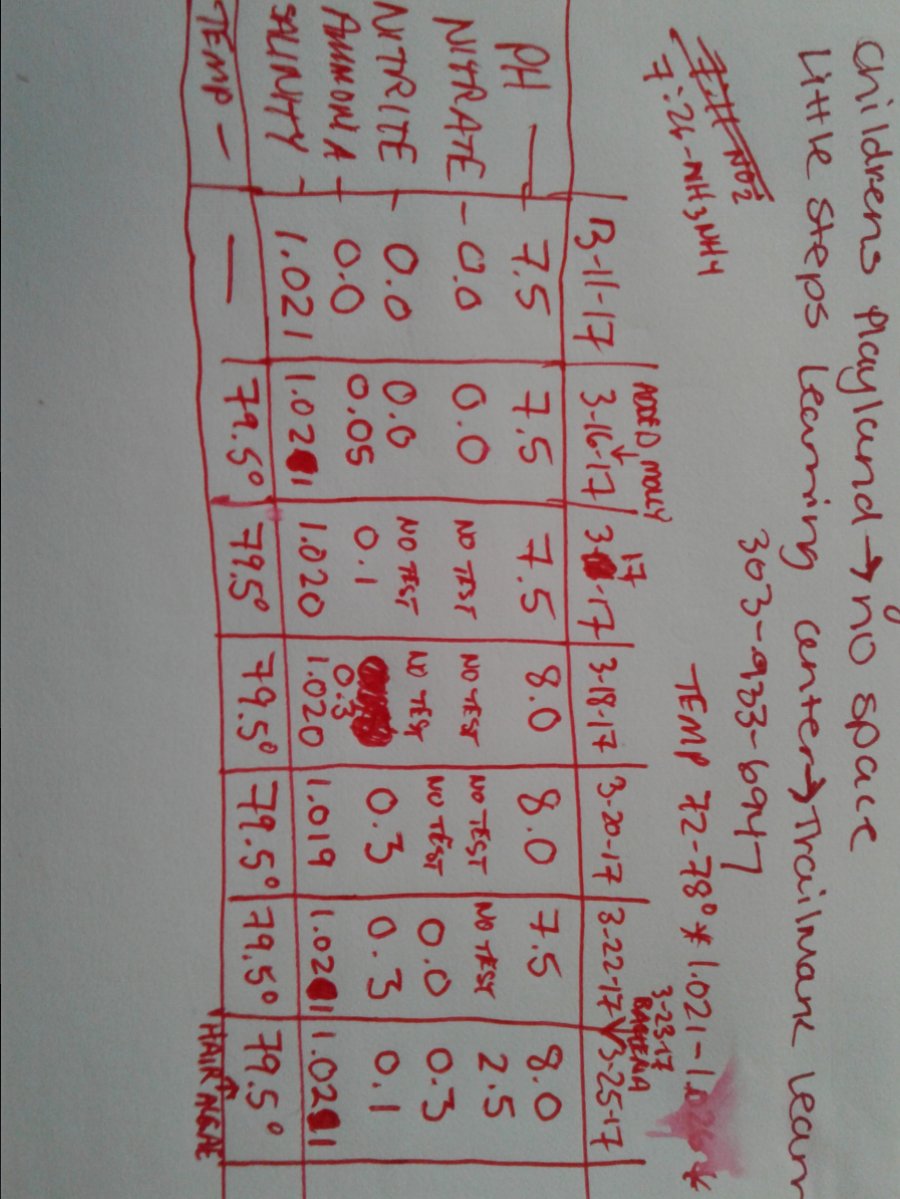 Childrens Playland → no space
Little Steps Learning center → Trailmark Learn
303-933-6947
7:26-NH3NH4
TEMP 72-78° * 1.021-1.026 *
ADDED MOLLY
3-23-17
BACTERIA
3-11-17 3-16-17 3-17-17 3-18-17 3-20-17 3-22-17 3-25-17
PH - 7.5 7.5 7.5 8.0 8.0 7.5 8.0
NITRATE - 0.0 0.0 NO TEST NO TEST NO TEST NO TEST 2.5
NITRITE - 0.0 0.0 NO TEST NO TEST NO TEST 0.0 0.3
AMMONIA - 0.0 0.05 0.1 0.3 0.3 0.3 0.1
SALINITY - 1.021 1.021 1.020 1.020 1.019 1.021 1.021
TEMP - — 79.5° 79.5° 79.5° 79.5° 79.5° 79.5°
HAIR ALGAE